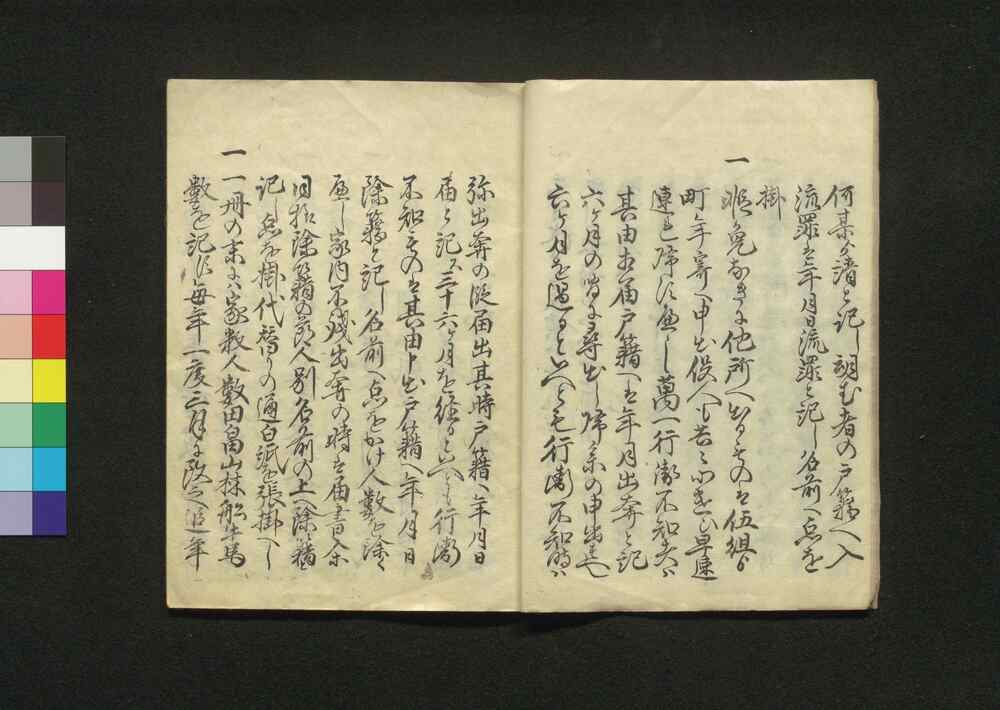 何某ゟ請と記し頼む者の戸籍へ入
流罪は年月日流罪と記し名前へ点を
掛
一 願免なきに他所へ出るものは伍組ゟ
町年寄へ申出役人へも告ぐ
連れ帰すべし萬一行衛不知者ハ
其由相届戸籍へは年月出奔と記
六ヶ月の間に尋出し帰参の申出
六ヶ月を過るといへども行衛不知時ハ
弥出奔の段届出其時戸籍へ年月日
届と記又三十六ヶ月を経るといへども行衛
不知ものは其由申出戸籍へ年月日
除籍と記し名前へ点をかけ人数を除く
べし家内不残出奔の時は届書
同拾除籍の節人別名前の上へ除籍
記し点を掛代替りの通白紙を張掛べし
一 一冊の末には家数人数田畠山林船牛馬
数を記し毎年一度三月に改之追年